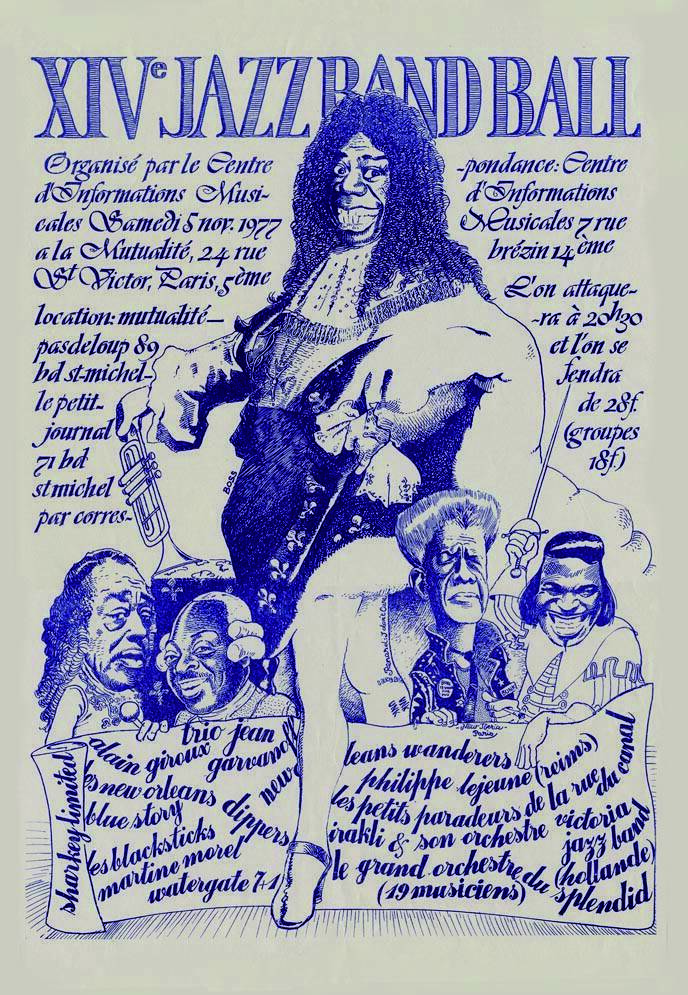 XIVe JAZZ BAND BALL
Organisé par le Centre
d'Informations Musi-
cales Samedi 5 nov. 1977
a la Mutualité, 24 rue
St Victor, Paris, 5ème
location: mutualité—
pasdeloup 89
bd st-michel-
le petit-
journal
71 bd
st michel
par corres-
-pondance: Centre
d'Informations
Musicales 7 rue
brézin 14ème
L'on attaque-
-ra à 20h30
et l'on se
fendra
de 28f.
(groupes
18f.)
BOSS
sharkey limited
alain giroux
trio jean
garvanoff
les new orleans
blue story
dippers
new
les blacksticks
martine morel
watergate 7+1
leans wanderers
philippe lejeune (reims)
les petits paradeurs de la rue du canal
irakli & son orchestre
victoria
jazz band
(hollande)
le grand orchestre du splendid
(19 musiciens)